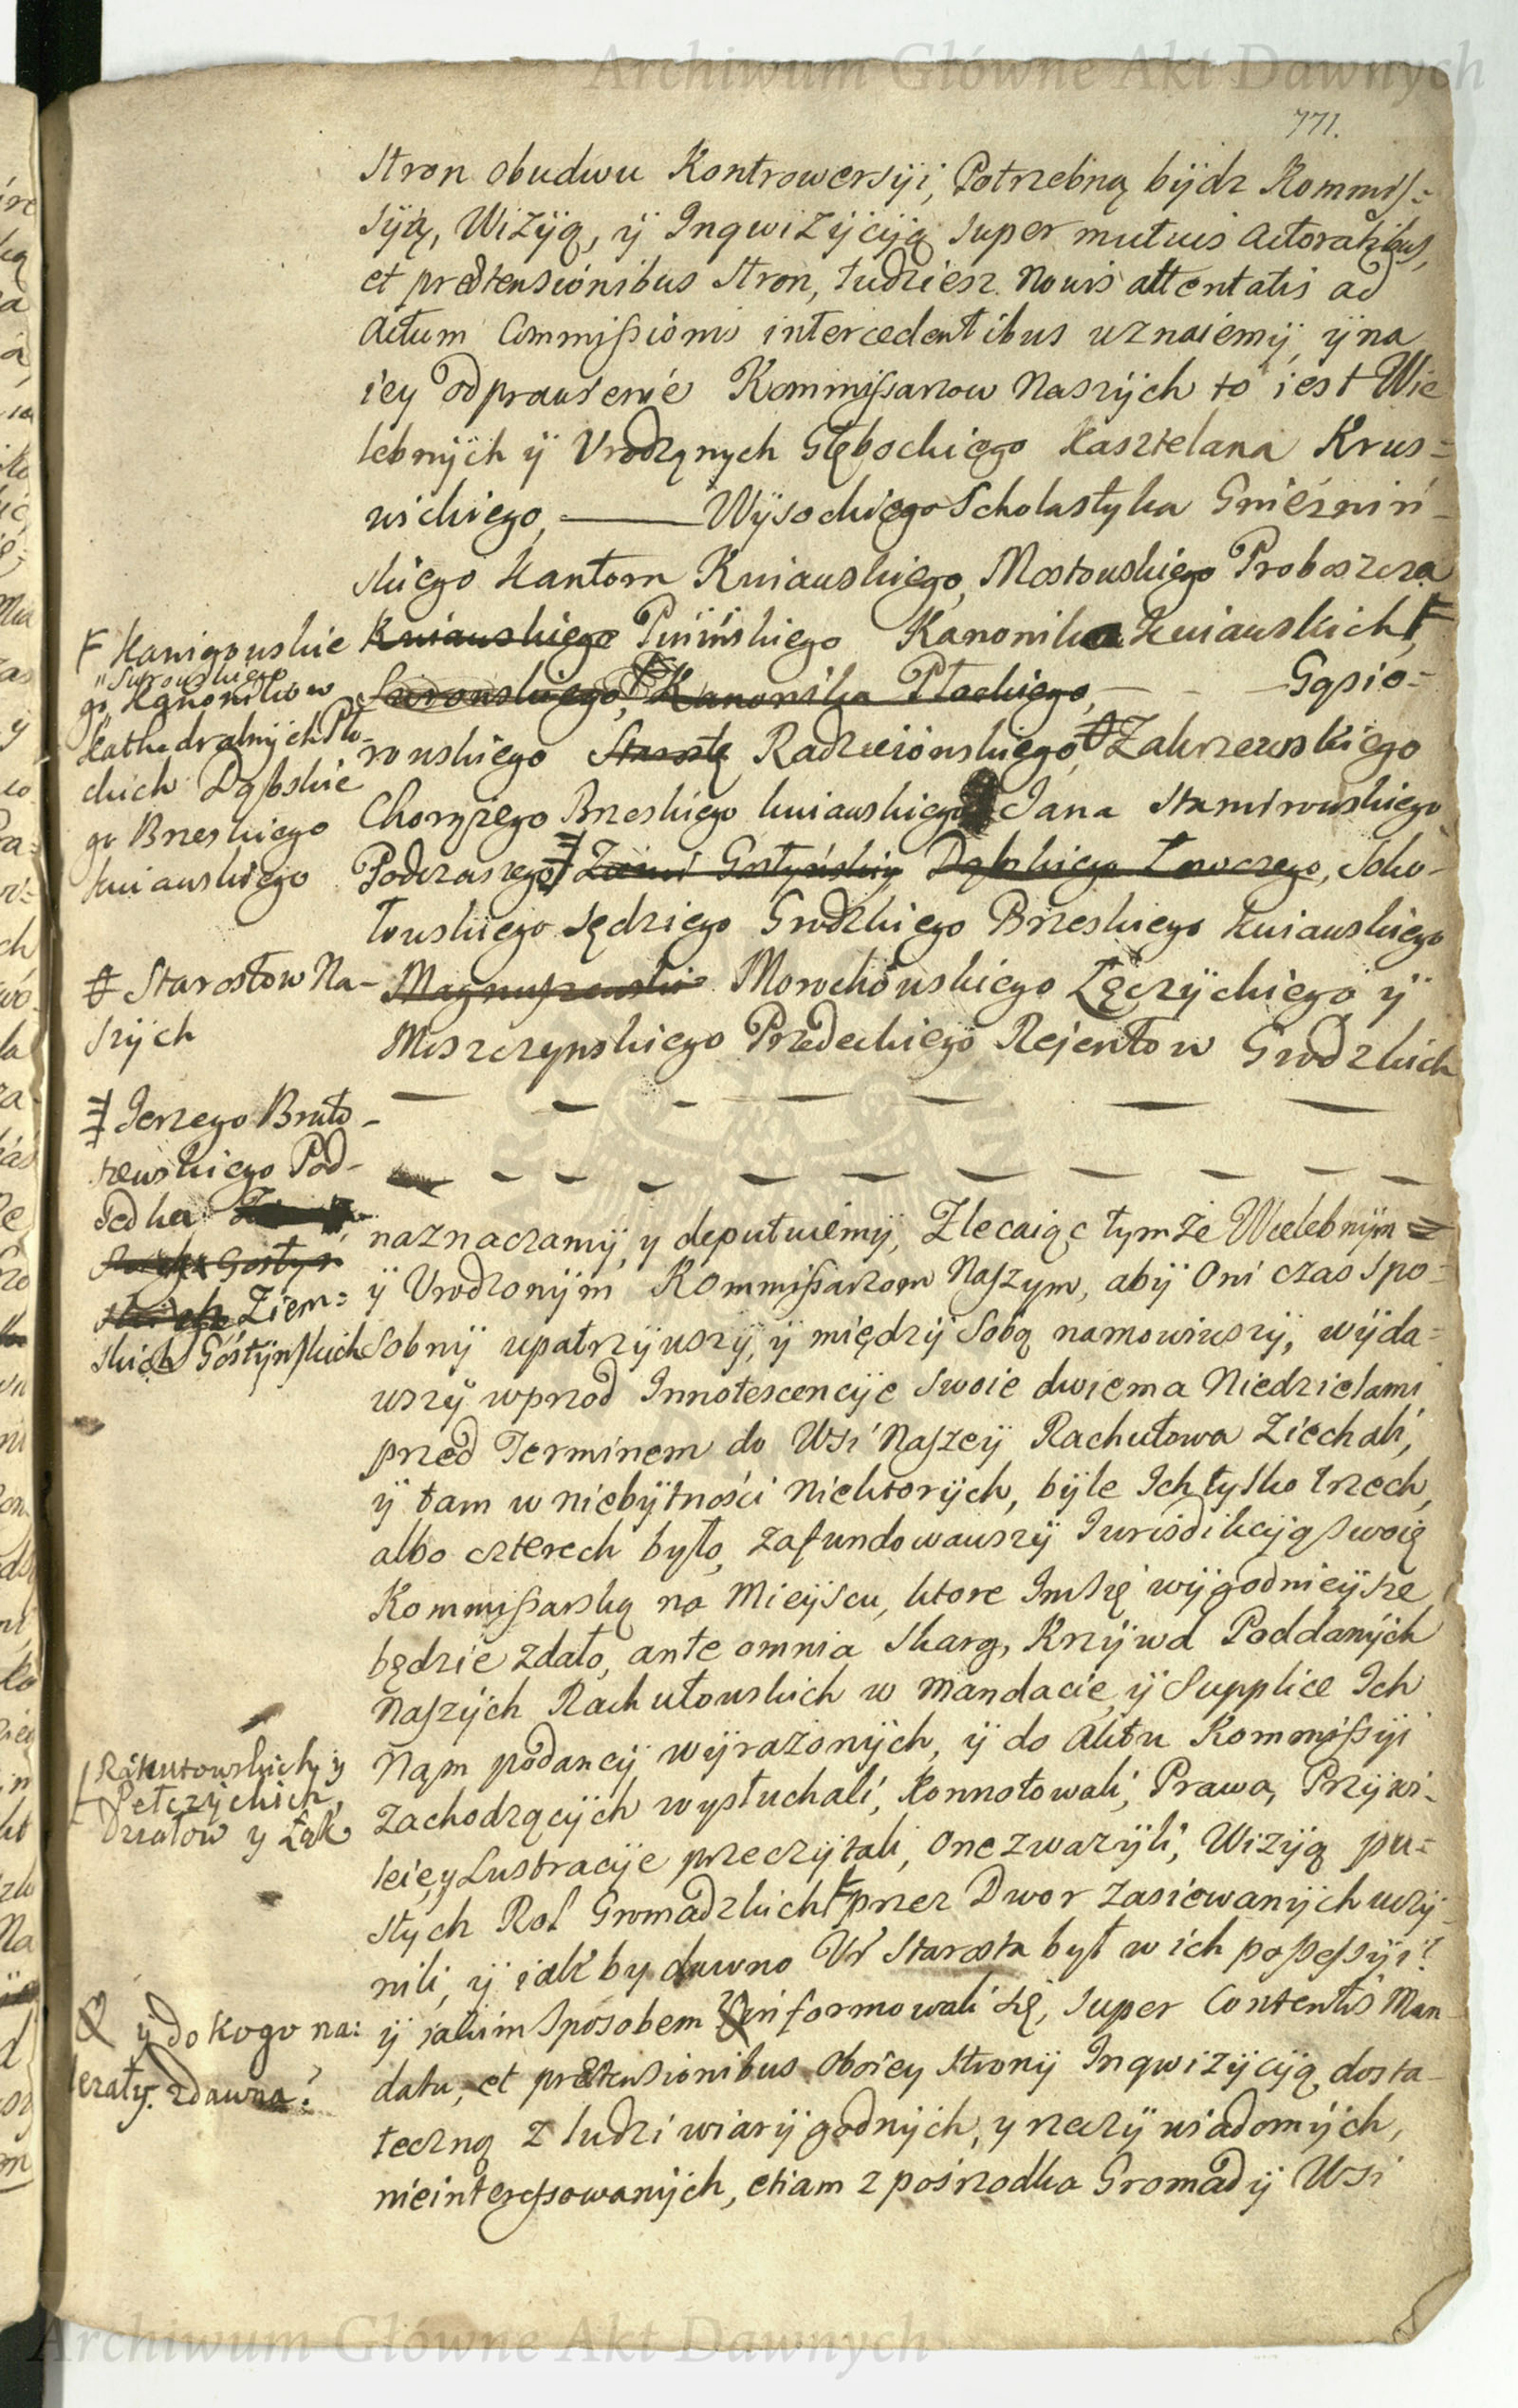 Archiwum Główne Akt Dawnych
771.
Stron obudwu Kontrowersÿi, Potrzebną bÿdz Kommis=
sÿią, Wizÿą, ÿ Inqwizÿcÿią super mutuis
et prætensionibus Stron, tudziesz novis attentatis ad
Actum Commissionis intercedentibus uznaiemÿ, ÿ na
iey odprawienie Kommissarzow Naszÿch to iest Wie
lebnÿch ÿ Urodzonych Głębockiego Kasztelana Krus=
wickiego, Wÿsockiego Scholastyka Gnieźniń-
skiego Kantora Kuiawskiego, Mostowskiego Proboszcza
Kuiawskiego Pinińskiego Kanonika Kuiawskich
Surowskiego, Kanonika Płockiego, Gąsio=
rowskiego Starostę Radzieiowskiego, Zakrzewskiego
Chorążego Brzeskiego kuiawskiego Jana Stamirowskiego
Podczaszego Ziemi Gostyńskiey Dąbskiego Łowczego, Soko-
łowskiego Sędziego Grodzkiego Brzeskiego kuiawskiego
Morochowskiego Łęczÿckiego ÿ
Miszczynskiego Przedeckiego Rejentow Grodzkich
naznaczamÿ, y deputuiemÿ, Zlecaiąc tymże Wielebnÿm
ÿ Urodzonÿm Kommissarzom Naszym, abÿ Oni czas spo=
sobnÿ upatrzÿwszÿ, ÿ międzÿ sobą namowiwszÿ, wÿda=
wszÿ wprzod Innotescencÿe swoie dwiema Niedzielami
przed Terminem do Wsi Naszeÿ Rachutowa Ziechali,
ÿ tam w niebÿtności niektorÿch, bÿle Ich tylko trzech,
albo czterech było, zafundowawszÿ Iurisdikcÿią swoię
Kommissarską na Mieÿscu, ktore Im się wÿgodnieÿsze
będzie zdało, ante omnia skarg, Krzÿwd Poddanÿch
Naszÿch Rachutowskich w Mandacie, ÿ Supplice Ich
Nam podanÿ wÿrażonÿch, ÿ do Aktu Kommissÿi
Zachodzącÿch wysłuchali, konnotowali, Prawa, Przÿwi-
leie, y Lustracÿe przeczÿtali, one zważÿli, Wizÿą pu=
stych Rol Gromadzkich przez Dwor zasiewanÿch uczÿ-
nili, ÿ iak by dawno Ur Starosta był w ich possessÿi?
ÿ iakim sposobem informowali się, super Contentis Man-
datu, et prætensionibus oboiey stronÿ Inqwizÿcÿią dosta-
teczną z ludzi wiarÿgodnÿch, y rzeczÿ wiadomÿch,
nieinteressowanÿch, etiam z pośrzodka Gromadÿ Wsi
Kanigowskie
Surowskiego
go, Kanonikow
Kathedralnÿch Pło-
ckich Dąbskie
go Brzeskiego
kuiawskiego
Starostow Na-
szÿch
Jerzego Bruto-
Pod-
sędka
Gostyn
Ziem=
skich Gostÿnskich
Rakutowskich, y
Pełczÿckich,
Działow y Łąk
ÿ do kogo na:
leżałÿ. zdawna?
Archiwum Główne Akt Dawnych